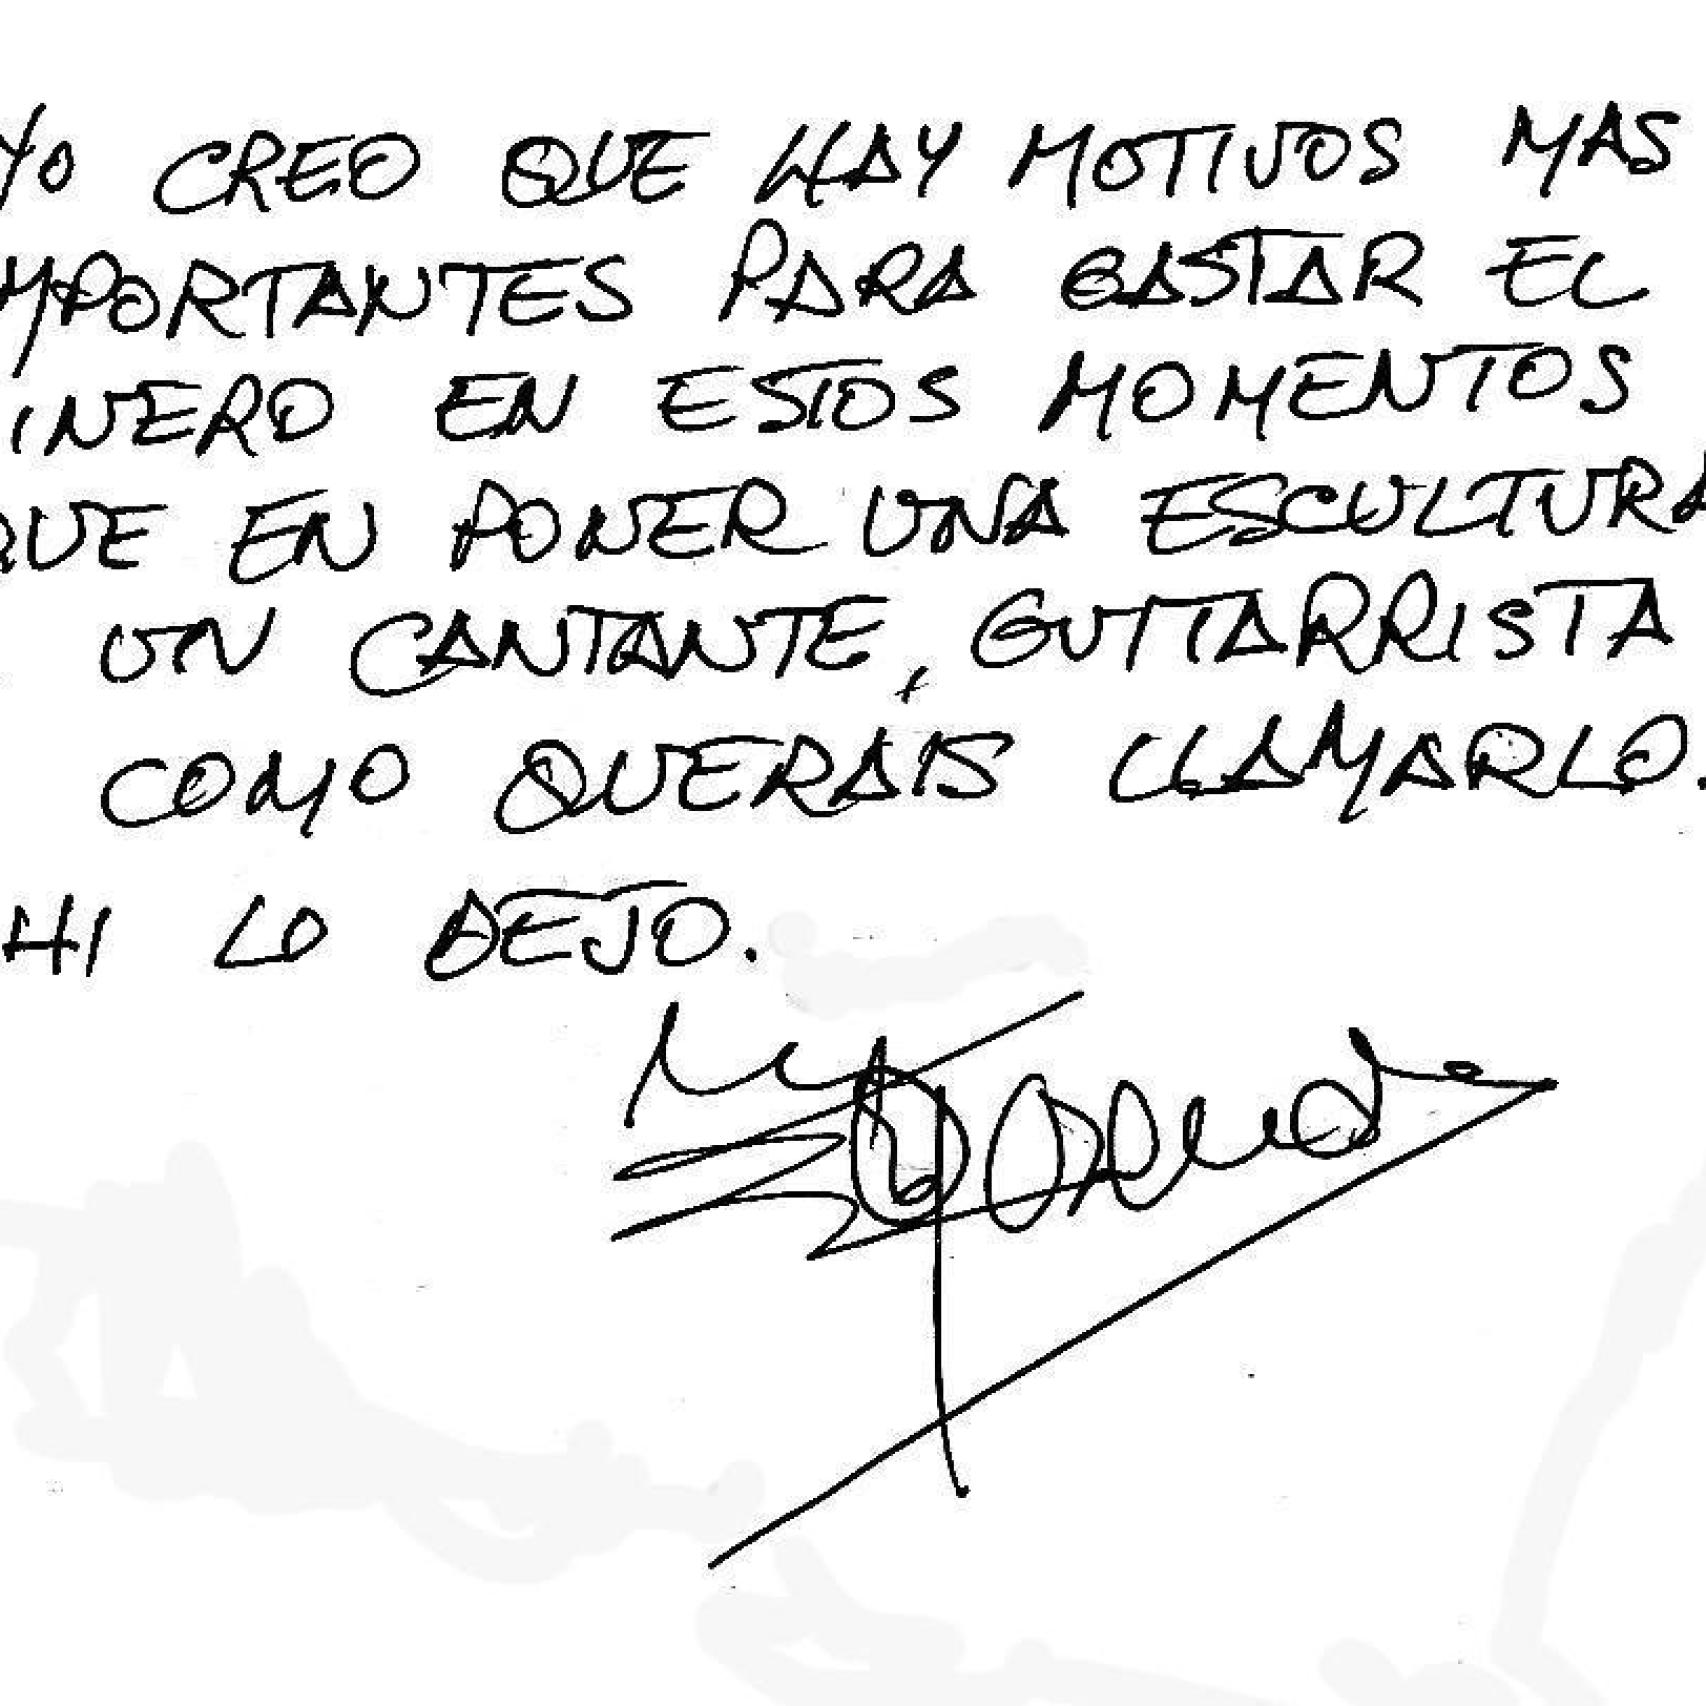 YO CREO QUE HAY MOTIVOS MAS
MPORTANTES PARA GASTAR EL
INERO EN ESTOS MOMENTOS
QUE EN PONER UNA ESCULTURA
UN CANTANTE, GUTTARRISTA
COMO QUERAIS LLAMARLO.
HI LO DEJO.